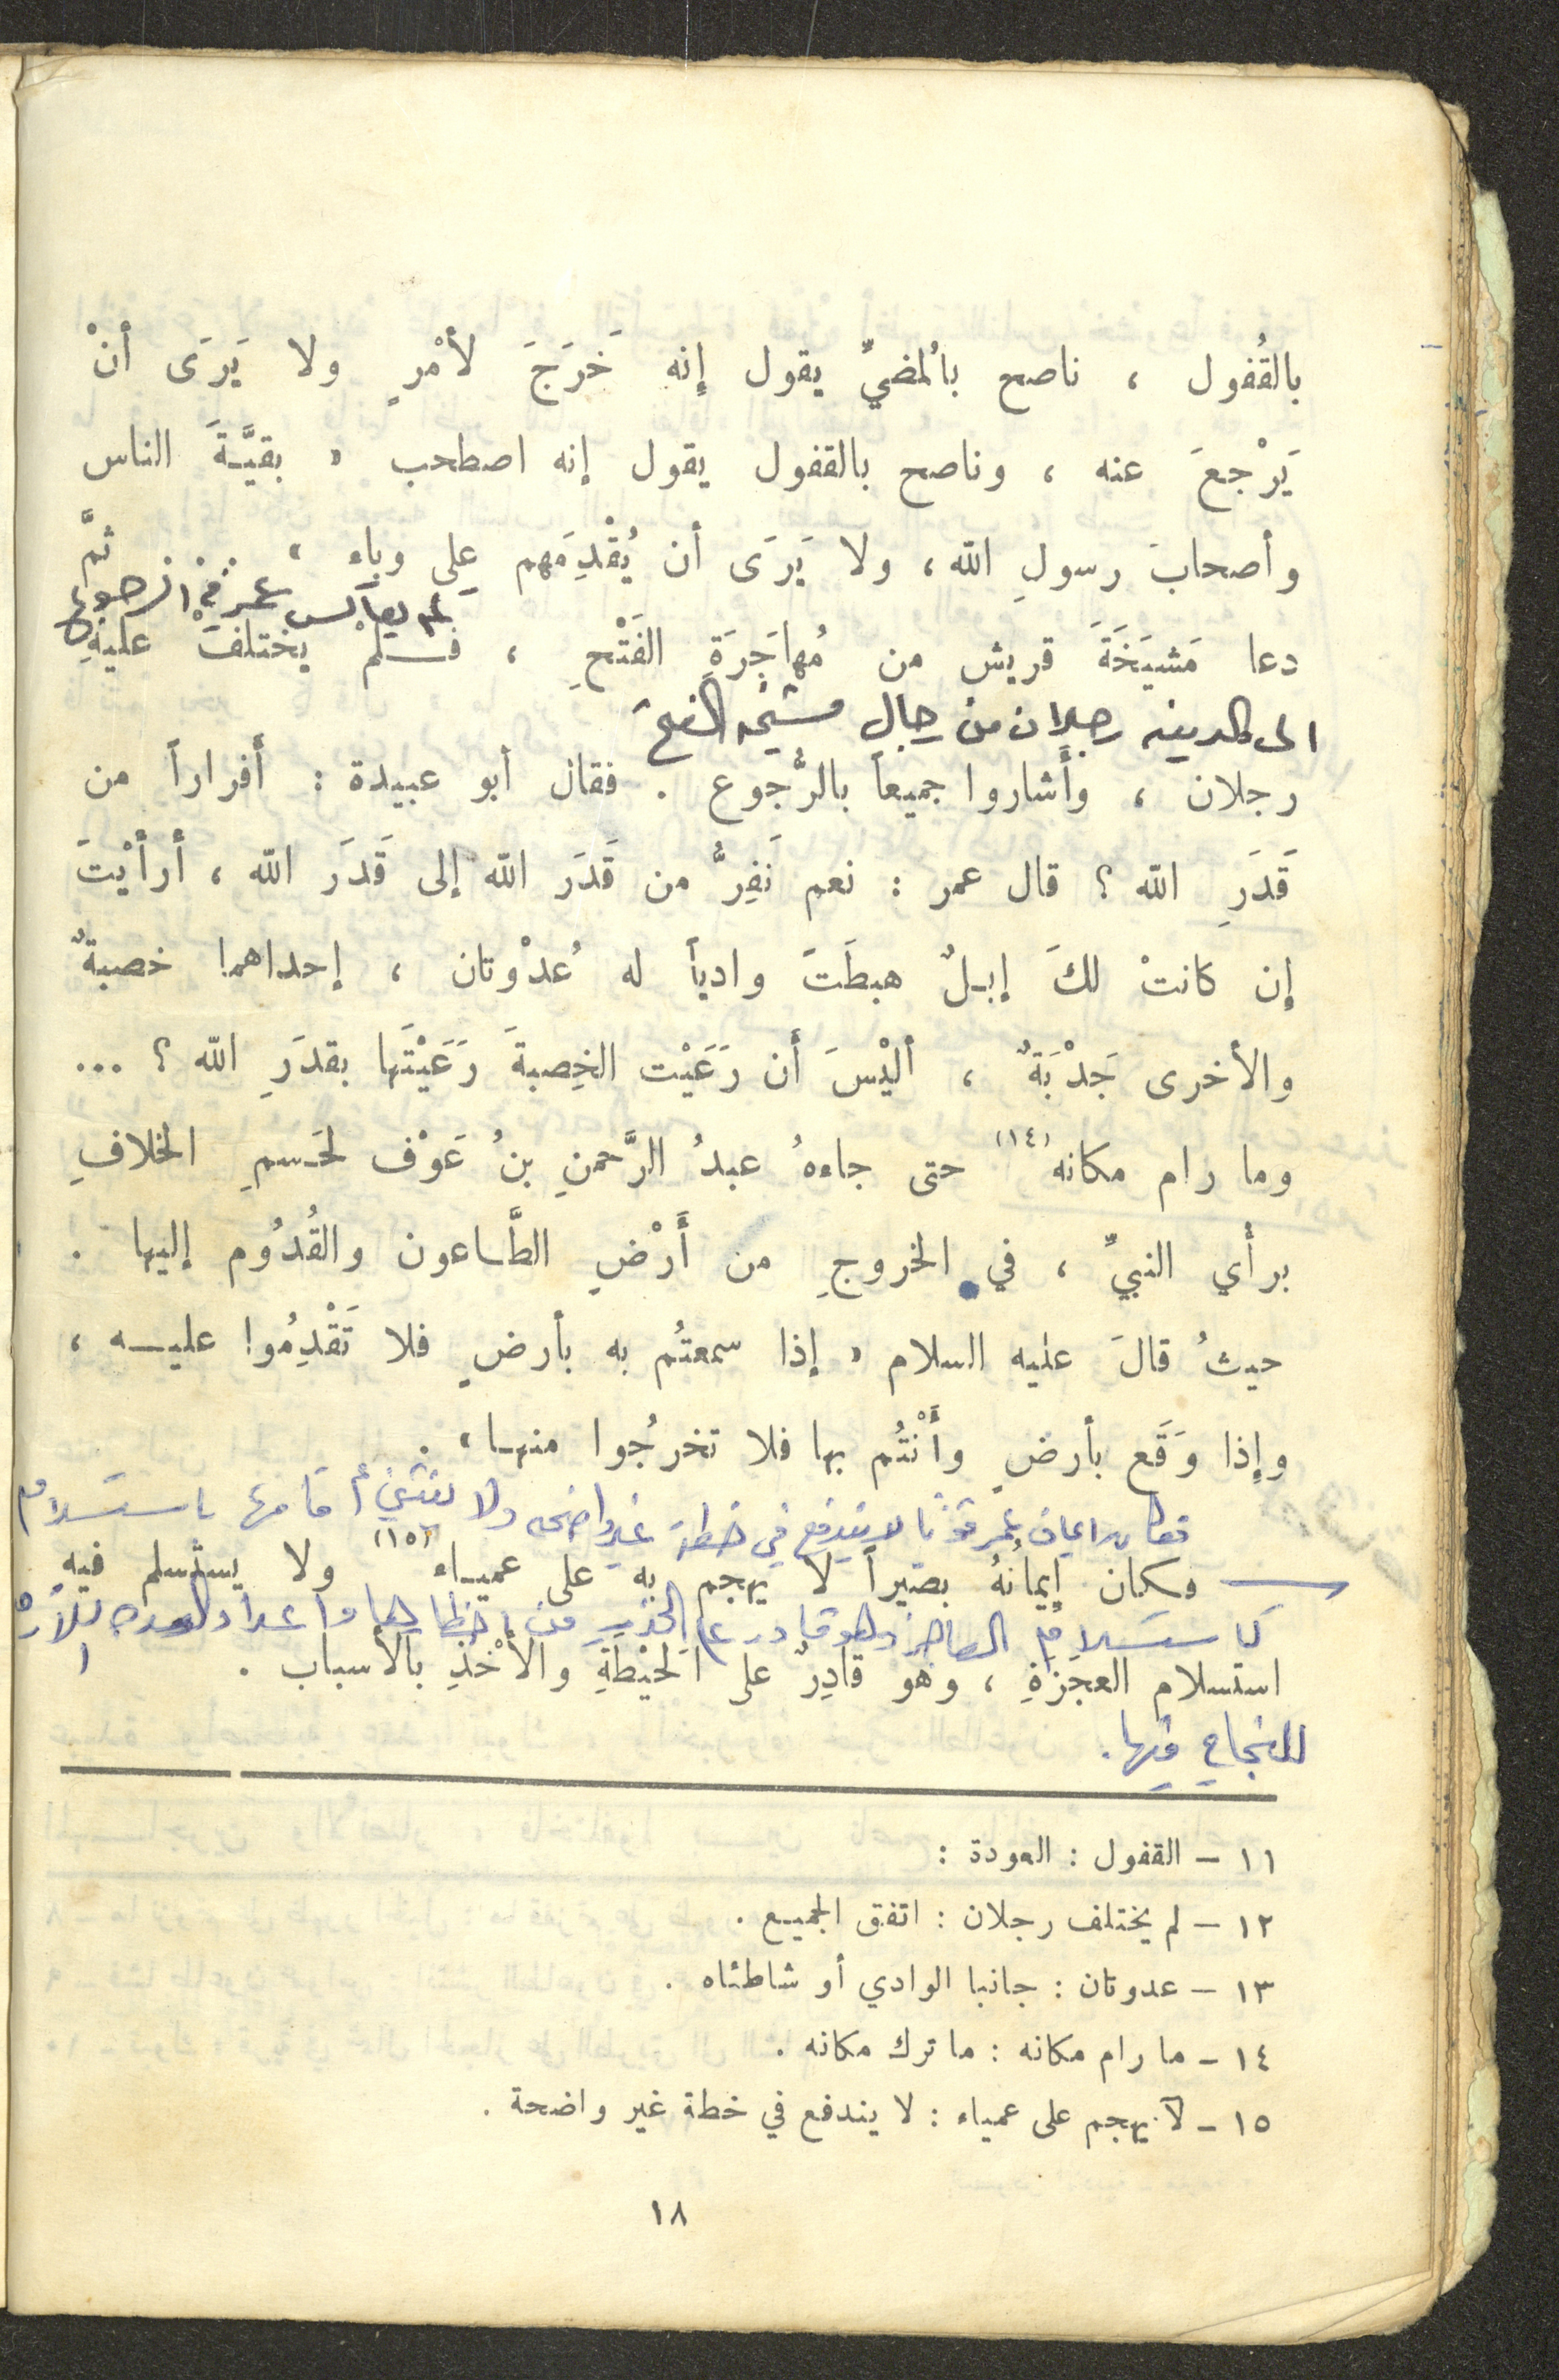 بالقُفول ، ناصح بالمُضيِّ يقول إنه خَرَجَ لأمْرٍ ولا يَرَى أنْ
يَرْجعَ عنه ، وناصح بالقفول يقول إنه اصطحب « بقيَّةَ الناس
وأصحابَ رسولِ الله ، ولا يَرَى أن يُقْدِمَهم على وباء » . ثمَّ
لم يعاكس عمر في الرجوع
دعا مَشيَخَةَ قريش من مُهاجَرَةِ الفَتْحِ ، فلمْ يختلفْ عليهِ
الى المدينه رجلان من رجال مشيخه الفتح
رجلان ، وأشاروا جميعاً بالرُّجوع . فقال أبو عبيدة : أفراراً من
قَدَرِ الله ؟ قال عمر : نعم نَفِرُّ من قَدَر الله إلى قَدَر الله ، أرأيْتَ
إن كانتْ لكَ إبلٌ هبطَتَ وادياً له عُدْوتان ، إحداهما خصبةٌ
والأخرى جَدْبَةٌ ، أليْسَ أن رَعَيْت الخِصبةَ رَعَيْتَها بقدَرِ الله ؟ ...
وما رام مكانه (١٤) حتى جاءهُ عبدُ الرَّحمنِ بنُ عَوْف لحَسمِ الخلافِ
برأي النبيِّ ، في الخروجِ من أَرْضِ الطَّاعون والقُدُوم إليها .
حيثُ قالَ عليه السلام « إذا سمعتُم به بأرضٍ فلا تَقْدِمُوا عليه ،
وإذا وَقَع بأرضٍ وأَنْتُم بها فلا تخرجُوا منها » .
فكان ايمان عمر قويا لا يندفع في خطة غير واضحه ولا ينثني أمامها باستسلام
وكان إيمانُهُ بصيراً لا يهجم به على عمياء (١٥) ولا يستسلم فيه
كاستسلام العاجز وهو قادر على الحذر من اخطارها واعداد العده
استسلام العجزَةِ ، وهو قادِرٌ على الحَيْطَةِ والأَخْذِ بالأسباب .
للنجاح فيها .
١١ – القفول : العودة :
١٢ – لم يختلف رجلان : اتفق الجميع .
١٣ – عدوتان : جانبا الوادي أو شاطئاه .
١٤ – ما رام مكانه : ما ترك مكانه .
١٥ – لا يهجم على عمياء : لا يندفع في خطة غير واضحة .
١٨